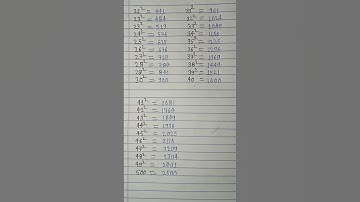 21² = 441 31² = 961
22² = 484 32² = 1024
23² = 529 33² = 1089
24² = 576 34² = 1156
25² = 625 35² = 1225
26² = 676 36² = 1296
27² = 729 37² = 1369
28² = 784 38² = 1444
29² = 841 39² = 1521
30² = 900 40 = 1600
41² = 1681
42² = 1764
43² = 1849
44² = 1936
45² = 2025
46² = 2116
= 2209
= 2304
49² = 2401
500 = 2500